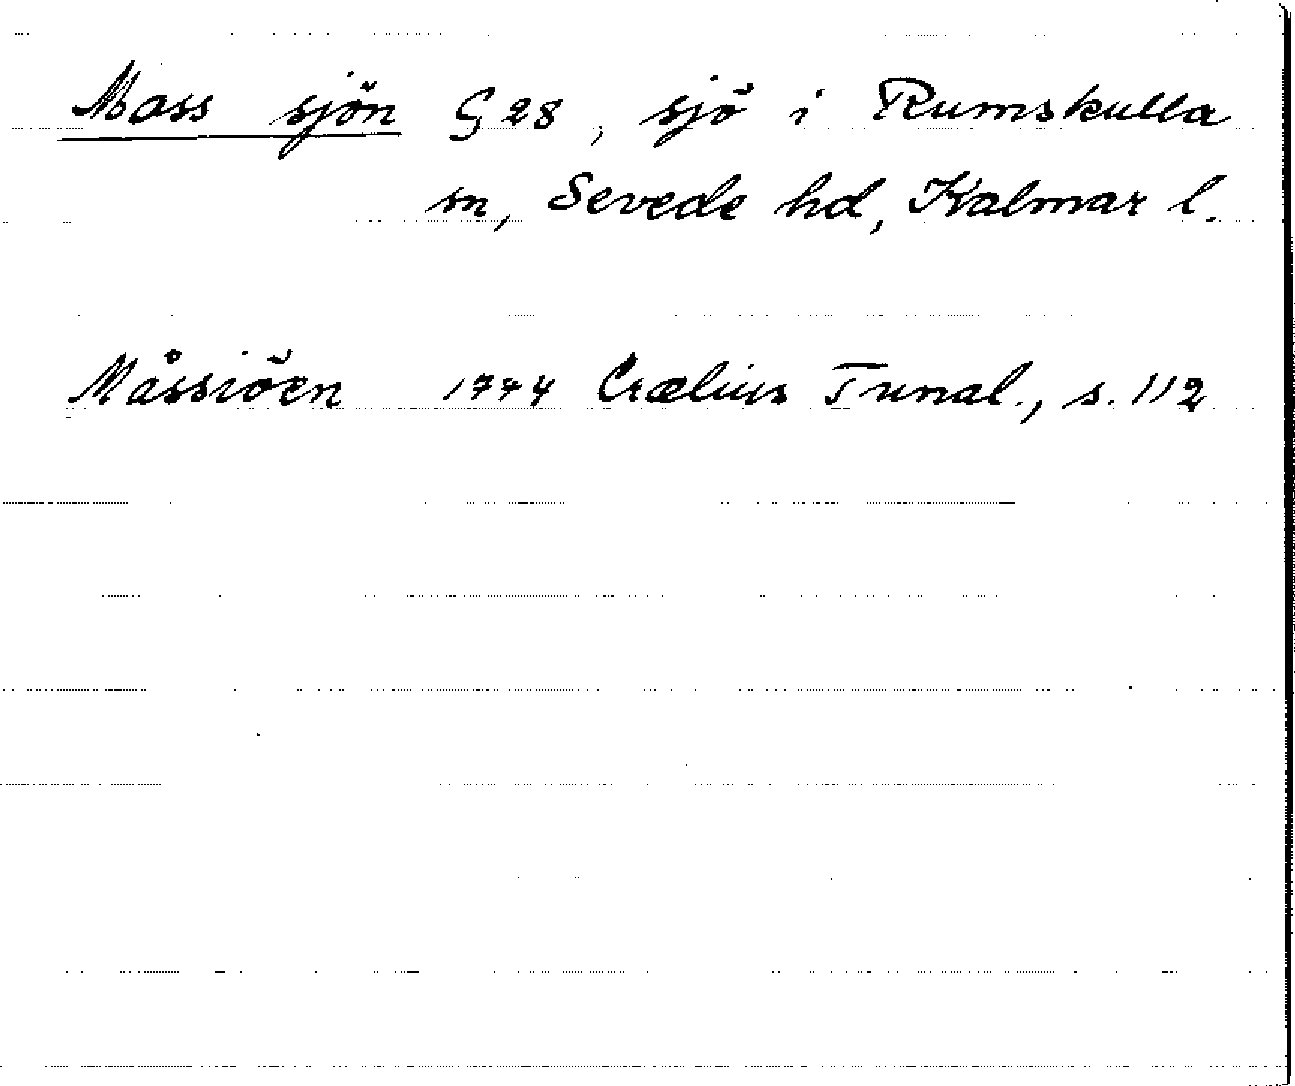 Mass sjön G 28, sjö i Rumskulla
sn, Sevede hd, Kalmar l.
Måssiöen 1774 Crælius Tunal., s. 112